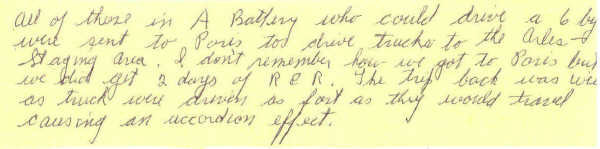 All of those in A Battery who could drive a 6 by
were sent to Paris to drive trucks to the Arles
Staging area. I don't remember how we got to Paris but
we did get 2 days of R & R. The trip back was
as truck were driven as fast as they would travel
causing an accordion effect.